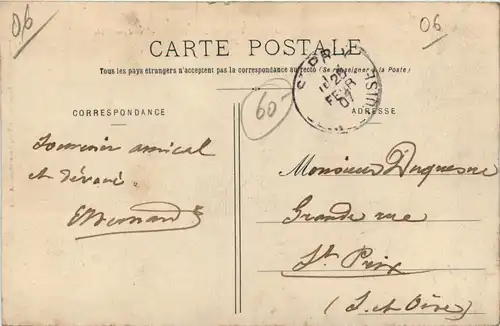 06
06
CARTE POSTALE
Tous les pays étrangers n'acceptent pas la correspondance au recto (Se renseigner à la Poste)
60-
ST PRIX
20
FEVR
07
S.-ET-OISE
CORRESPONDANCE
ADRESSE
Souvenir amical
et dévoué.
Monsieur Duquesne
Grande rue
St Prix
(S. et Oise)